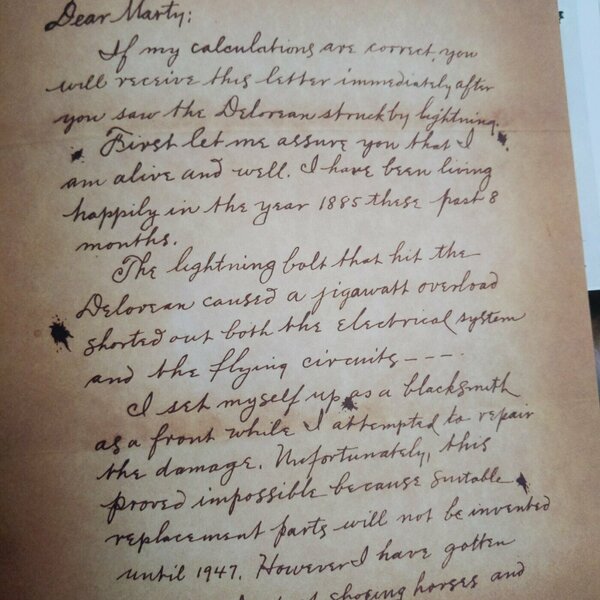 Dear Marty:
If my calculations are correct, you
will receive this letter immediately after
you saw the Delorean struck by lightning.
First let me assure you that I
am alive and well. I have been living
happily in the year 1885 these past 8
months.
The lightning bolt that hit the
Delorean caused a jigawatt overload
shorted out both the electrical system
and the flying circuits - - - .
I set myself up as a blacksmith
as a front while I attempted to repair
the damage. Unfortunately, this
proved impossible because suitable
replacement parts will not be invented
until 1947. However I have gotten
shoeing horses and